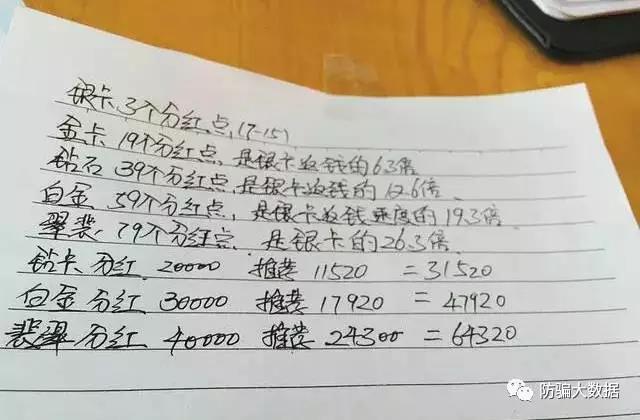 银卡3个分红点,(7-15)
金卡19个分红点,是银卡返钱的6.3倍
钻石39个分红点,是银卡返钱的12.6倍.
白金59个分红点,是银卡返钱速度的19.3倍.
翠裴79个分红点 是银卡的26.3倍.
钻卡 分红 20000 推荐 11520 =31520
白金 分红 30000 推荐 17920 =47920
裴翠 分红 40000 推荐 24300 =64320
防骗大数据